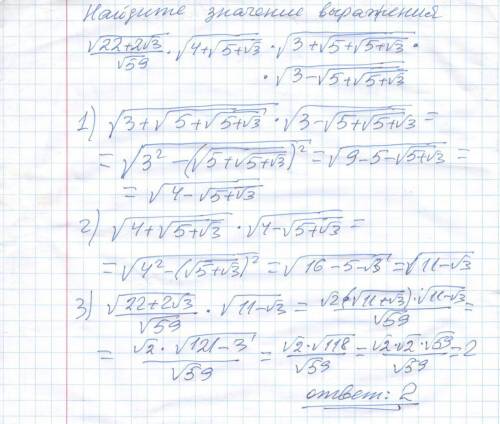 Найдите значение выражения
√(22+2√3)/√59 · √(4+√(5+√3)) · √(3+√(5+√(5+√3))) ·
· √(3-√(5+√(5+√3)))
1) √(3+√(5+√(5+√3))) · √(3-√(5+√(5+√3))) =
= √(3²-(√(5+√(5+√3)))²) = √(9-5-√(5+√3)) =
= √(4-√(5+√3))
2) √(4+√(5+√3)) · √(4-√(5+√3)) =
= √(4²-(√(5+√3))²) = √(16-5-√3) = √(11-√3)
3) √(22+2√3)/√59 · √(11-√3) = √2(√(11+√3)) · √(11-√3)/√59 =
= √2 · √(121-3)/√59 = √2 · √118/√59 = √2·√2·√59/√59 = 2
ответ: 2